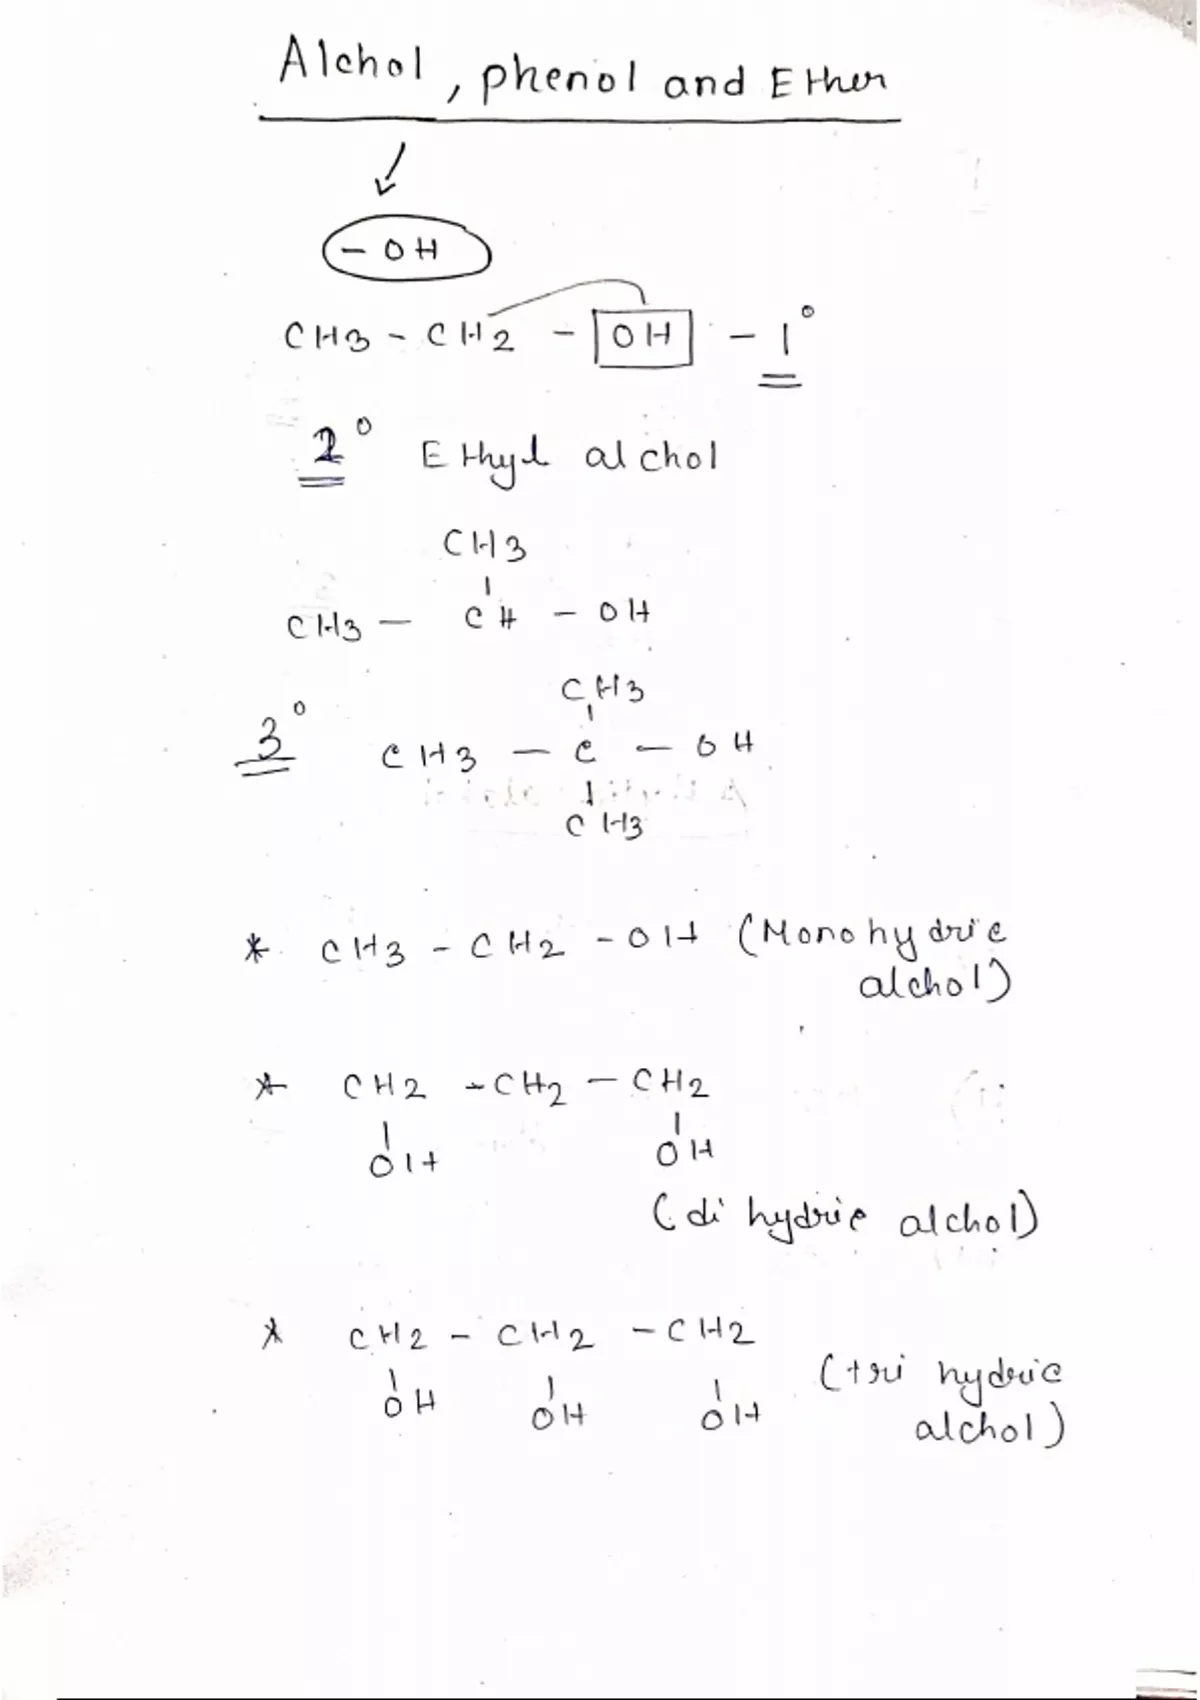 Alchol, phenol and Ether
- OH
CH3 - CH2 - OH - 1°
2° Ethyl alchol
CH3
|
CH3 - CH - OH
CH3
|
3° CH3 - C - OH
|
CH3
* CH3 - CH2 - OH (Monohydric
alchol)
* CH2 - CH2 - CH2
| |
OH OH
(di hydric alchol)
* CH2 - CH2 - CH2
| | |
OH OH OH
(tri hydric
alchol)